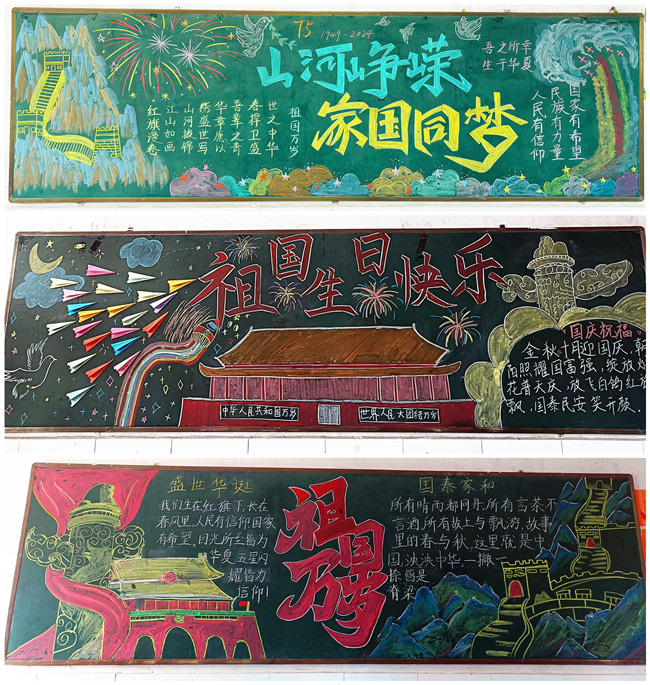 75
1949-2024
山河峥嵘
家国同梦
红旗漫卷
江山如画
山河披锦
绣盛世写
华章愿以
吾辈之青
春捍卫盛
世之中华
祖国万岁
吾之所幸
生于华夏
人民有信仰
民族有力量
国家有希望
祖国生日快乐
中华人民共和国万岁
世界人民大团结万岁
国庆祝福
金秋十月迎国庆,朝
阳照耀国富强,绽放
花普天庆,放飞白鸽红
飘.国泰民安笑开颜.
盛世华诞
我们生在红旗下,长在
春风里,人民有信仰国家
有希望,目光所至皆为
华夏,五星闪
耀皆为
信仰!
祖国万岁
国泰家和
所有晴雨都同舟,所有言茶不
言酒,所有故土与飘游,故事
里的春与秋,这里就是中
国,泱泱中华,一撇一
捺皆是
脊梁